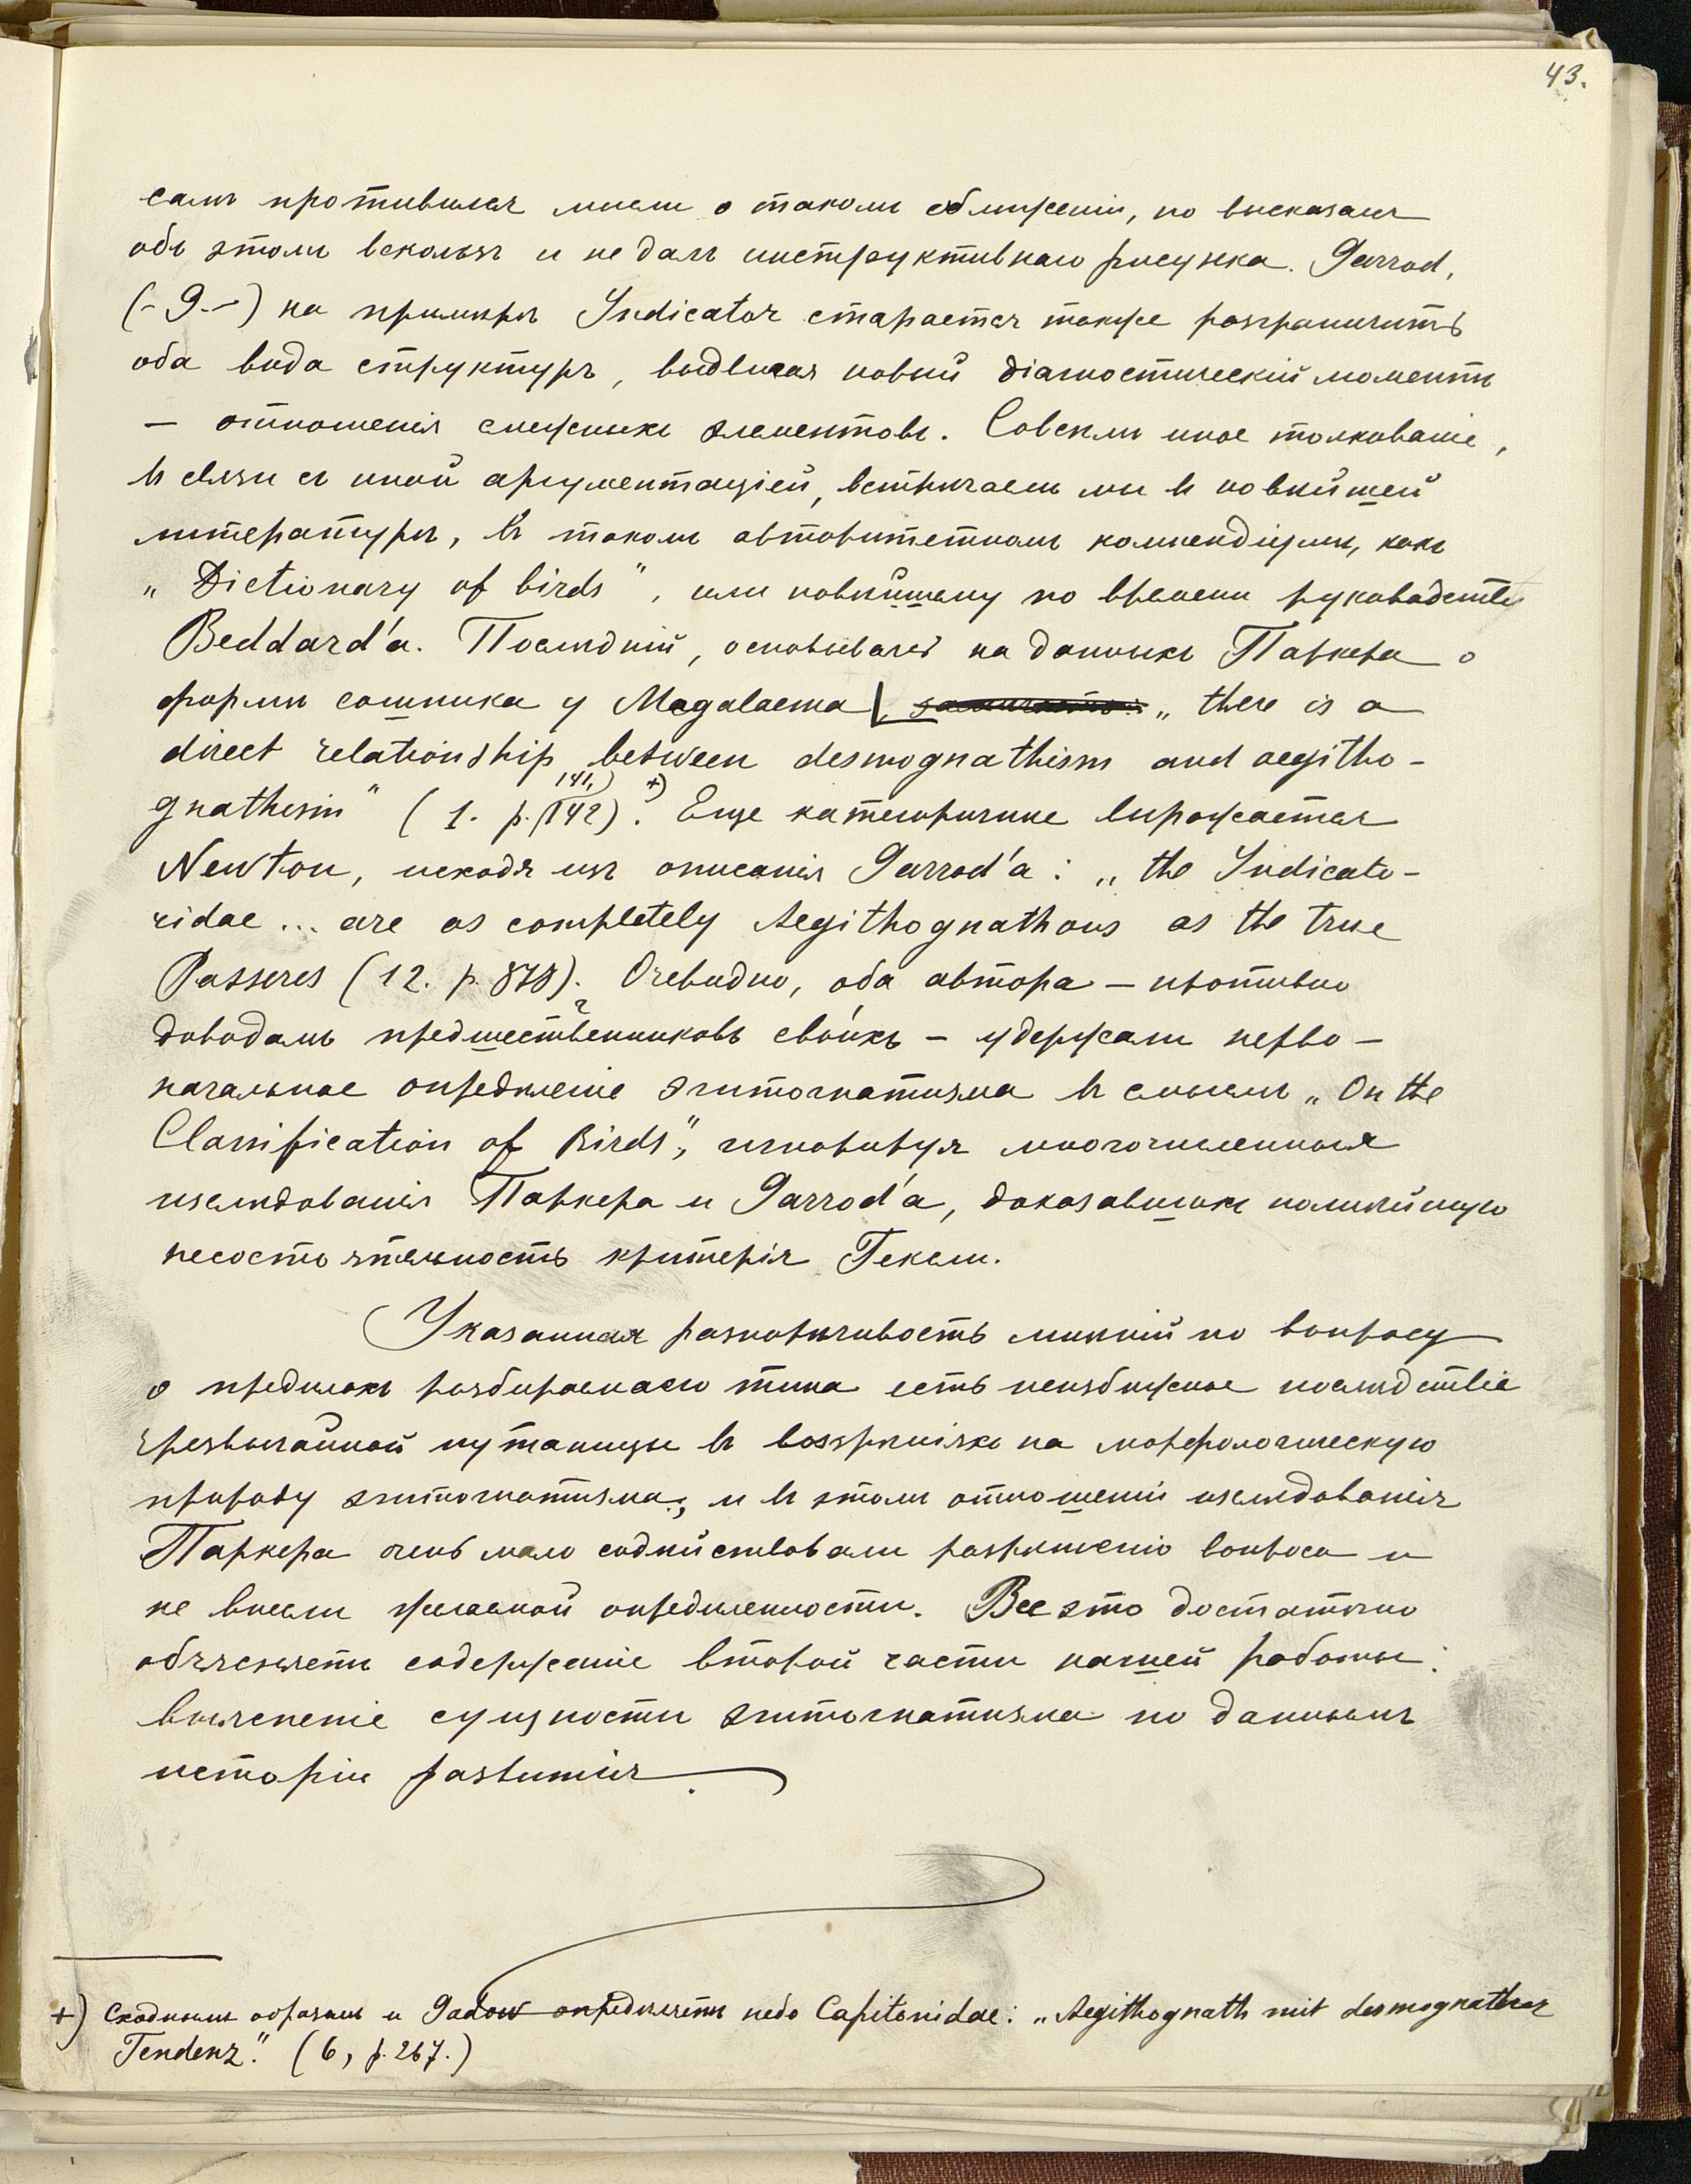 43.
самъ противился мысли о такомъ сближеніи, но высказался
объ этомъ вскользь и не далъ инструктивнаго рисунка. Garrod,
(-9-) на примѣрѣ Indicator старается также разграничить
оба вида структуръ, выдвигая новый діагностическій моментъ
— отношенія смежныхъ элементовъ. Совсѣмъ иное толкованіе,
въ связи съ иной аргументаціей, встрѣчаемъ мы въ новѣйшей
литературѣ, въ такомъ авторитетномъ компендіумѣ, какъ
„Dictionary of birds", или новѣйшему по времени руководству
Beddard'a. Послѣдній, основываясь на данныхъ Паркера о
формѣ сошника у Megalaema „there is a
direct relationship between desmognathism and aegitho-
gnathism" (1. p. 141, 142).+) Еще категоричнѣе выражается
Newton, исходя изъ описанія Garrod'a: „the Indicato-
ridae ... are as completely Aegithognathous as the true
Passeres (12. p. 878). Очевидно, оба автора — противно
доводамъ предшественниковъ своихъ — удержали перво-
начальное опредѣленіе эгитогнатизма въ смыслѣ „On the
Classification of Birds", игнорируя многочисленныя
изслѣдованія Паркера и Garrod'a, доказавшихъ полнѣйшую
несостоятельность критерія Гексли.
Указанная разнорѣчивость мнѣній по вопросу
о предѣлахъ разбираемаго типа есть неизбѣжное послѣдствіе
чрезвычайной путаницы въ воззрѣніяхъ на морфологическую
природу эгитогнатизма; и въ этомъ отношеніи изслѣдованія
Паркера очень мало содѣйствовали разрѣшенію вопроса и
не внесли желаемой опредѣленности. Все это достаточно
объясняетъ содержаніе второй части нашей работы:
выясненіе сущности эгитогнатизма по даннымъ
исторіи развитія.
+) Сходнымъ образомъ и Gadow опредѣляетъ небо Capitonidae: „Aegithognath mit desmognather
Tendenz." (6, p. 267.)